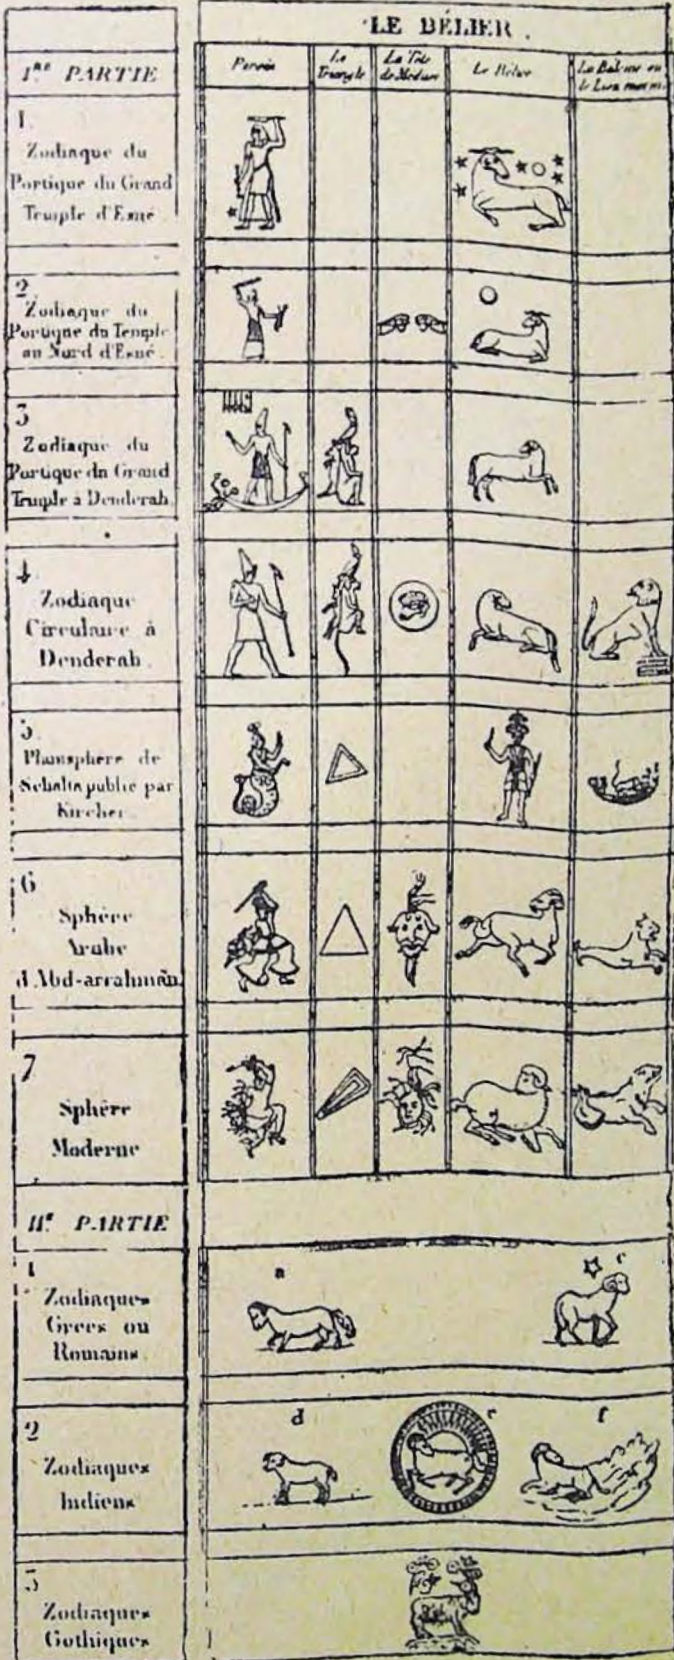 LE BÉLIER.
I.re PARTIE
Persée
Le Triangle
La Tête de Méduse
Le Bélier
1.
Zodiaque du
Portique du Grand
Temple d'Esné
2
Zodiaque du
Portique du Temple
au Nord d'Esné.
3
Zodiaque du
Portique du Grand
Temple à Denderah
4
Zodiaque
Circulaire à
Denderah.
5.
Planisphère de
publié par
Kircher
6
Sphère
Arabe
d'Abd-arrahmân
7
Sphère
Moderne
II.e PARTIE
1
a
c
Zodiaques
Grecs ou
Romains
2
d
e
f
Zodiaques
Indiens
3
Zodiaques
Gothiques